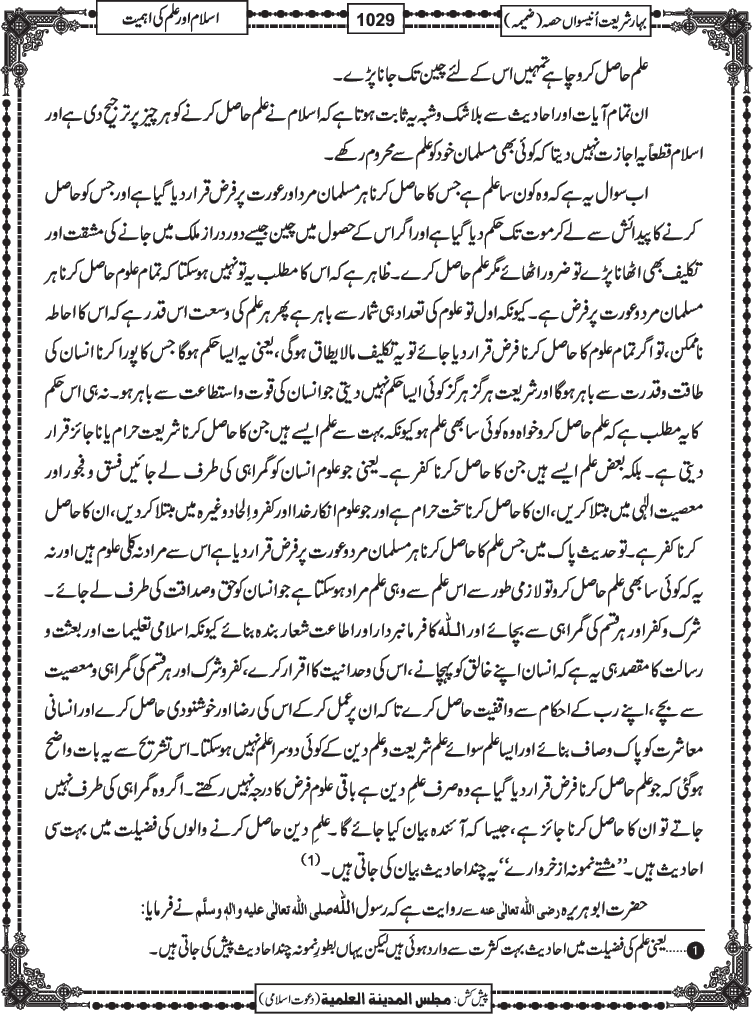 بہار شریعت اُنیسواں حصہ (ضمیمہ)
1029
اسلام اور علم کی اہمیت
علم حاصل کرو چاہے تمہیں اس کے لئے چین تک جانا پڑے۔
ان تمام آیات اور احادیث سے بلا شک وشبہ یہ ثابت ہوتا ہے کہ اسلام نے علم حاصل کرنے کو ہر چیز پر ترجیح دی ہے اور
اسلام قطعاً یہ اجازت نہیں دیتا کہ کوئی بھی مسلمان خود کو علم سے محروم رکھے۔
اب سوال یہ ہے کہ وہ کون سا علم ہے جس کا حاصل کرنا ہر مسلمان مرد اور عورت پر فرض قرار دیا گیا ہے اور جس کو حاصل
کرنے کا پیدائش سے لے کر موت تک حکم دیا گیا ہے اور اگر اس کے حصول میں چین جیسے دور دراز ملک میں جانے کی مشقت اور
تکلیف بھی اٹھانا پڑے تو ضرور اٹھائے مگر علم حاصل کرے۔ ظاہر ہے کہ اس کا مطلب یہ تو نہیں ہوسکتا کہ تمام علوم حاصل کرنا ہر
مسلمان مرد و عورت پر فرض ہے۔ کیونکہ اول تو علوم کی تعداد ہی شمار سے باہر ہے پھر ہر علم کی وسعت اس قدر ہے کہ اس کا احاطہ
ناممکن، تو اگر تمام علوم کا حاصل کرنا فرض قرار دیا جائے تو یہ تکلیف مالایطاق ہوگی، یعنی یہ ایسا حکم ہوگا جس کا پورا کرنا انسان کی
طاقت وقدرت سے باہر ہوگا اور شریعت ہرگز ہرگز کوئی ایسا حکم نہیں دیتی جو انسان کی قوت و استطاعت سے باہر ہو۔ نہ ہی اس حکم
کا یہ مطلب ہے کہ علم حاصل کرو خواہ وہ کوئی سا بھی علم ہو کیونکہ بہت سے علم ایسے ہیں جن کا حاصل کرنا شریعت حرام یا ناجائز قرار
دیتی ہے۔ بلکہ بعض علم ایسے ہیں جن کا حاصل کرنا کفر ہے۔ یعنی جو علوم انسان کو گمراہی کی طرف لے جائیں فسق و فجور اور
معصیت الٰہی میں مبتلا کریں، ان کا حاصل کرنا سخت حرام ہے اور جو علوم انکار خدا اور کفر و الحاد وغیرہ میں مبتلا کردیں، ان کا حاصل
کرنا کفر ہے۔ تو حدیث پاک میں جس علم کا حاصل کرنا ہر مسلمان مرد و عورت پر فرض قرار دیا ہے اس سے مراد نہ کلی علوم ہیں اور نہ
یہ کہ کوئی سا بھی علم حاصل کرو تو لازمی طور سے اس علم سے وہی علم مراد ہوسکتا ہے جو انسان کو حق وصداقت کی طرف لے جائے۔
شرک و کفر اور ہر قسم کی گمراہی سے بچائے اور اللہ کا فرمانبردار اور اطاعت شعار بندہ بنائے کیونکہ اسلامی تعلیمات اور بعثت و
رسالت کا مقصد ہی یہ ہے کہ انسان اپنے خالق کو پہچانے، اس کی وحدانیت کا اقرار کرے، کفر و شرک اور ہر قسم کی گمراہی و معصیت
سے بچے، اپنے رب کے احکام سے واقفیت حاصل کرے تاکہ ان پر عمل کرکے اس کی رضا اور خوشنودی حاصل کرے اور انسانی
معاشرت کو پاک وصاف بنائے اور ایسا علم سوائے علم شریعت و علم دین کے کوئی دوسرا علم نہیں ہوسکتا۔ اس تشریح سے یہ بات واضح
ہوگئی کہ جو علم حاصل کرنا فرض قرار دیا گیا ہے وہ صرف علمِ دین ہے باقی علوم فرض کا درجہ نہیں رکھتے۔ اگر وہ گمراہی کی طرف نہیں
جاتے تو ان کا حاصل کرنا جائز ہے، جیسا کہ آئندہ بیان کیا جائے گا۔ علمِ دین حاصل کرنے والوں کی فضیلت میں بہت سی
احادیث ہیں۔ ”مشتے نمونہ از خروارے“ یہ چند احادیث بیان کی جاتی ہیں۔ (1)
حضرت ابو ہریرہ رضی اللہ تعالٰی عنہ سے روایت ہے کہ رسول اللہ صلی اللہ تعالٰی علیه واٰلہٖ وسلَّم نے فرمایا:
1 ......یعنی علم کی فضیلت میں احادیث بہت کثرت سے وارد ہوئی ہیں لیکن یہاں بطور نمونہ چند احادیث پیش کی جاتی ہیں۔
پیش کش: مجلس المدینة العلمیة (دعوت اسلامی)